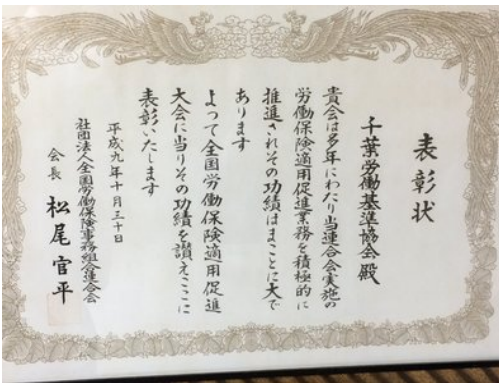 表彰状
千葉労働基準協会殿
貴会は多年にわたり当連合会実施の
労働保険適用促進業務を積極的に
推進されその功績はまことに大で
あります
よって全国労働保険適用促進
大会に当りその功績を讃えここに
表彰いたします
平成九年十月三十日
社団法人全国労働保険事務組合連合会
会長 松尾官平